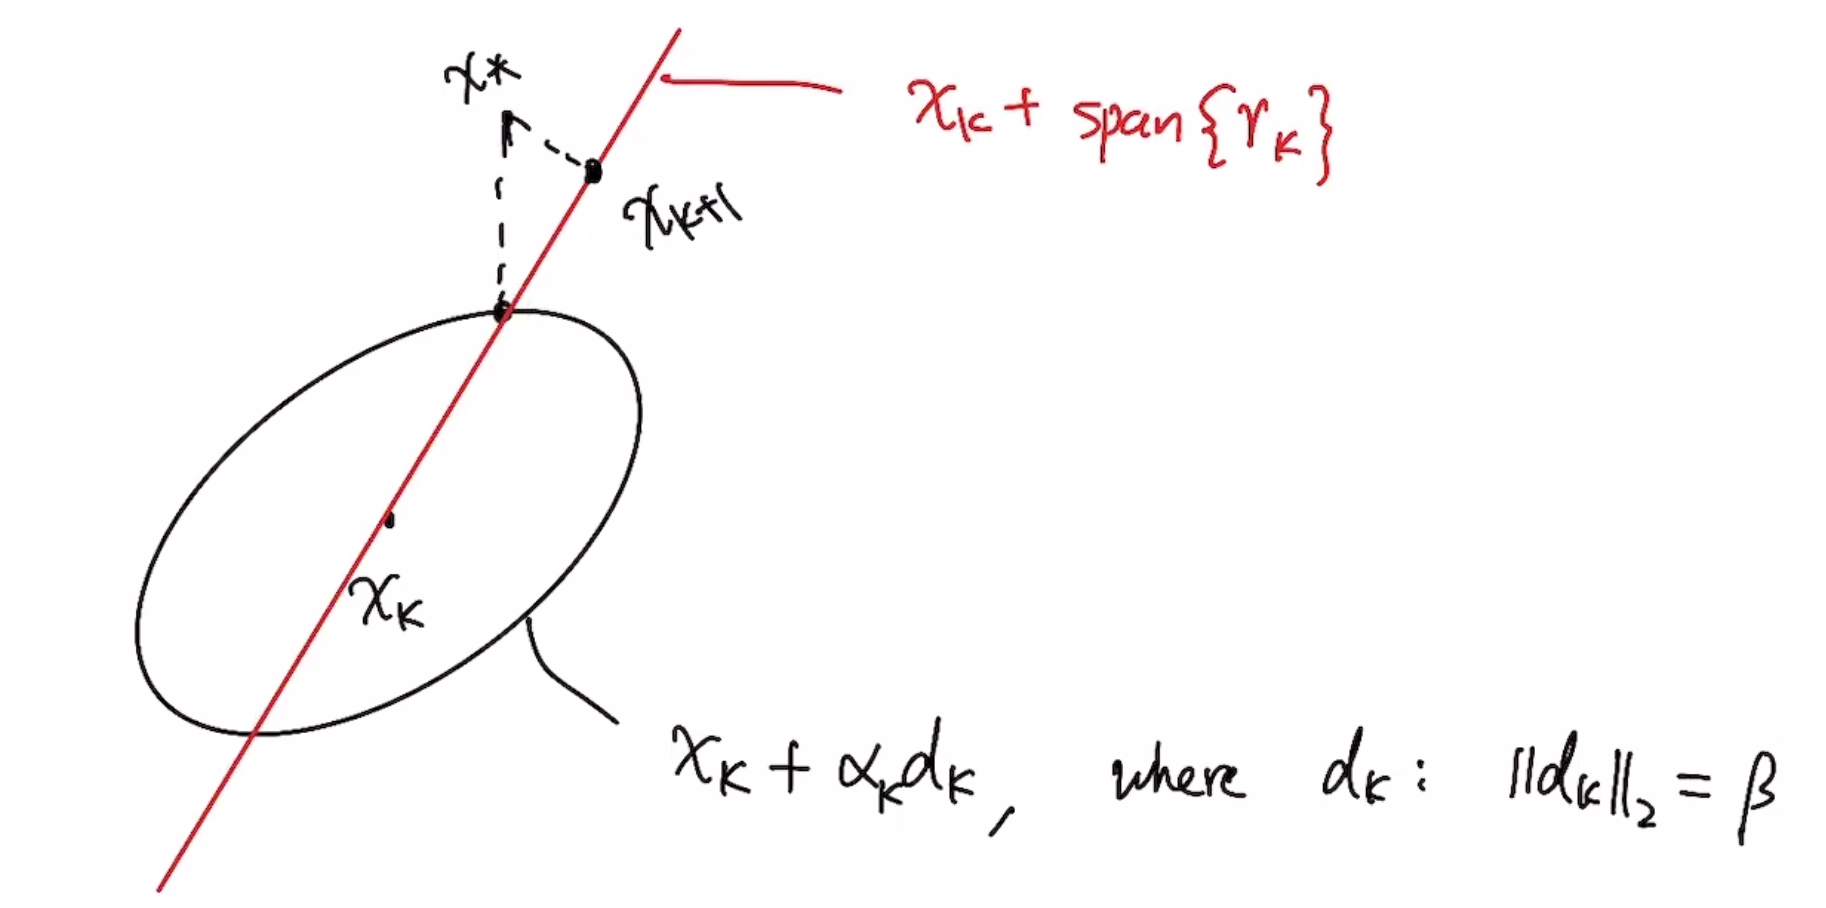 x*
x_k + span{r_k}
x_{k+1}
x_k
x_k + α_k d_k, where d_k: ||d_k||_2 = β